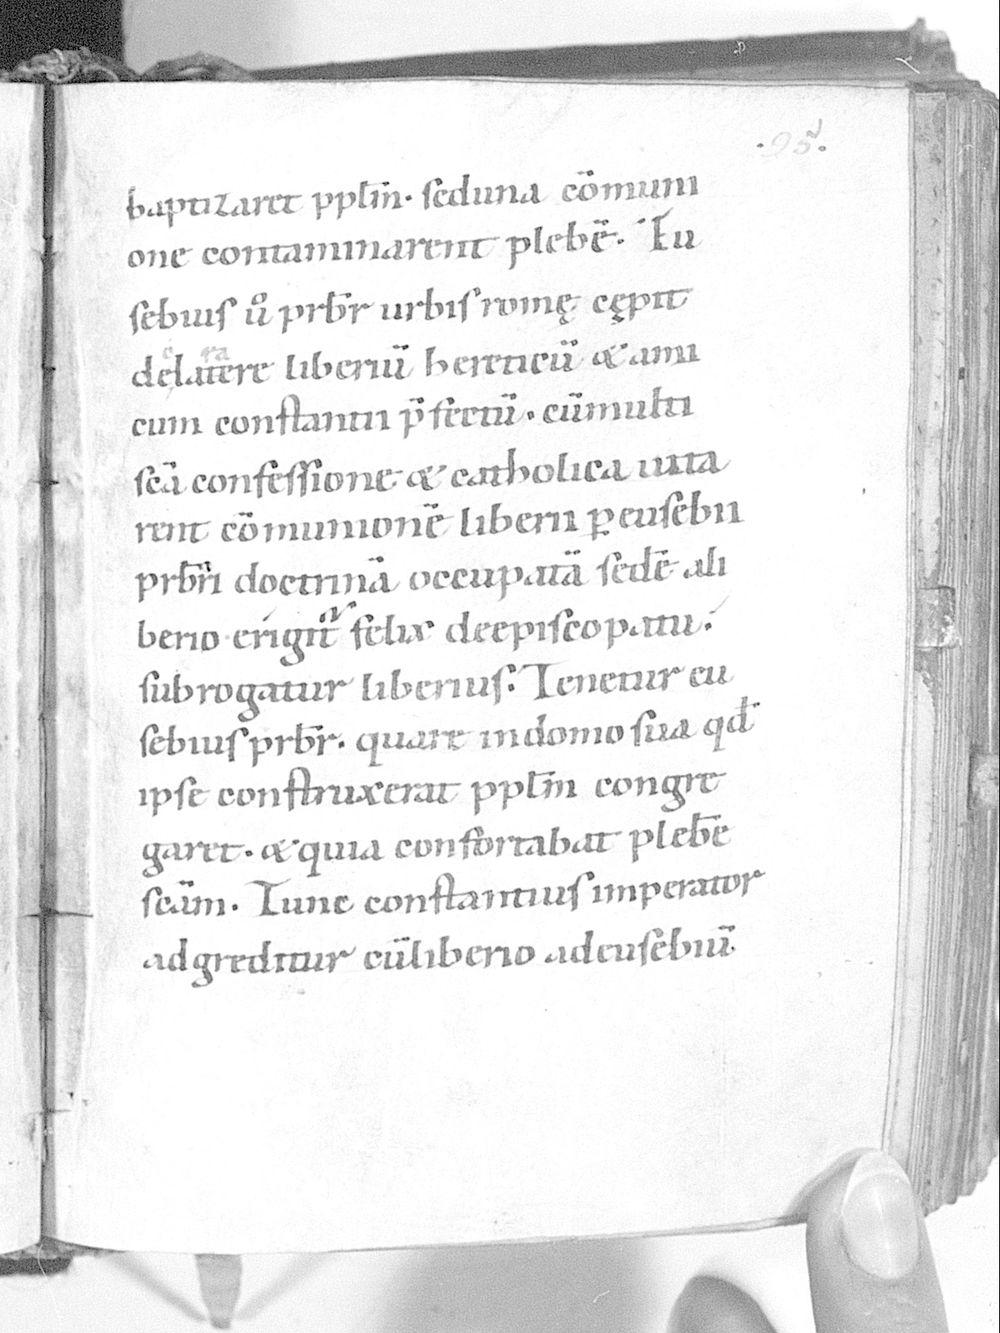 ·95·
baptizaret pplm̄· seduna cōmuni
one contaminarent plebē· Eu
sebius ů prb̄r urbis romę cępit
delatere liberiū hereticū & ami
cum constantii p̄fectū· cūmulti
scā confessione & catholica uita
rent cōmunionē liberii ꝑ eusebii
prb̄ri doctrinā occupatā sedē ali
berio erigit felix deepiscopatu·
subrogatur liberius· Tenetur eu
sebius prb̄r· quare indomo sua qđ
ipse construxerat pplm̄ congre
garet· & quia confortabat plebē
scām· Tunc constantius imperator
adgreditur cūliberio adeusebiū